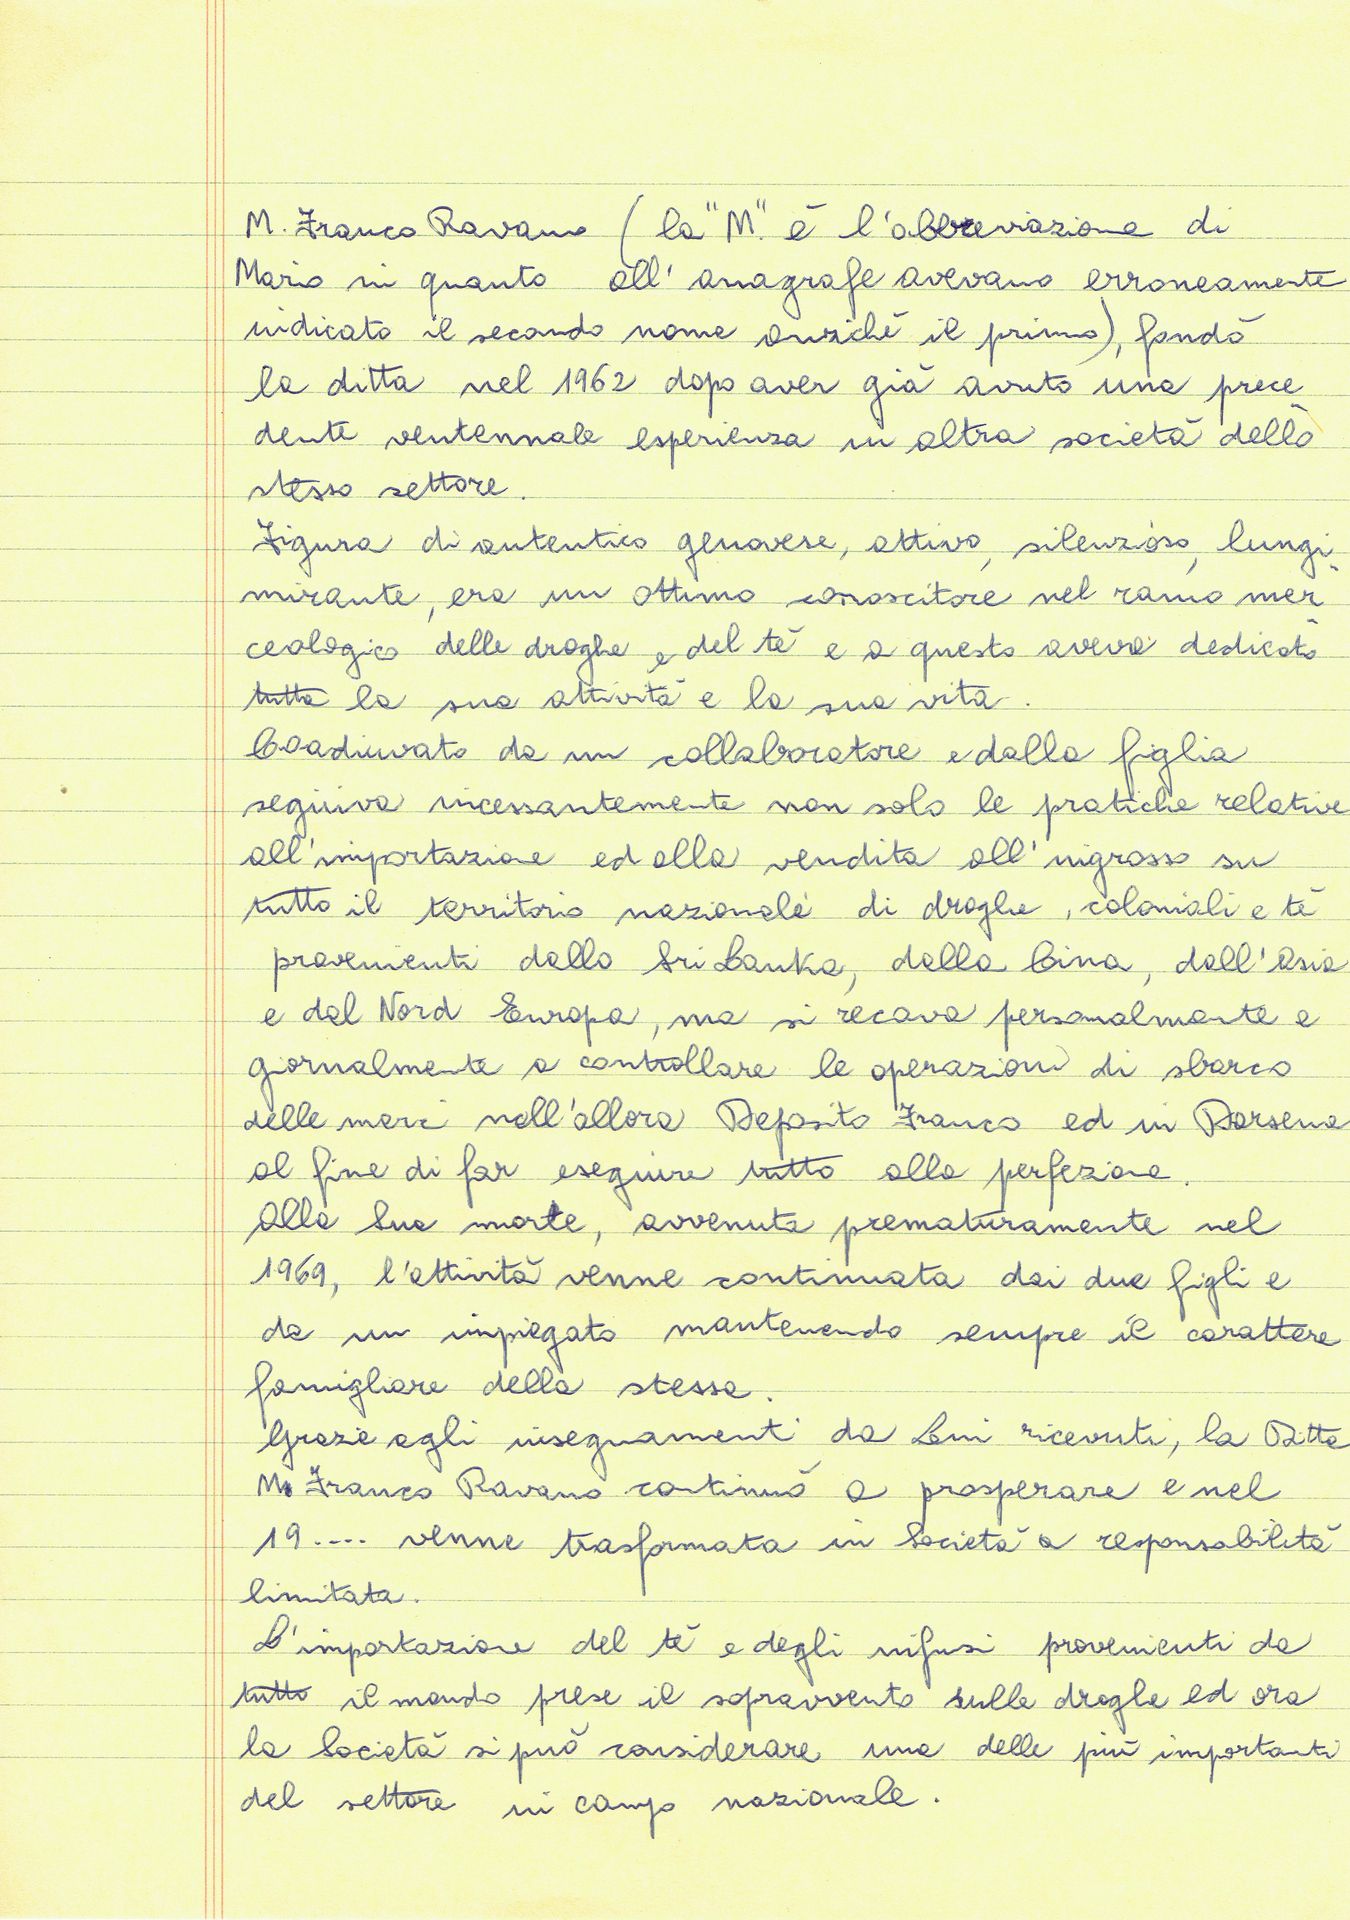 M. Franco Ravano (la "M." è l'abbreviazione di
Mario in quanto all'anagrafe avevano erroneamente
indicato il secondo nome anziché il primo), fondò
la ditta nel 1962 dopo aver già avuto una prece
dente ventennale esperienza in altra società dello
stesso settore.
Figura di autentico genovese, attivo, silenzioso, lungi-
mirante, era un ottimo conoscitore nel ramo mer
ceologico delle droghe e del tè e a questo aveva dedicato
tutta la sua attività e la sua vita.
Coadiuvato da un collaboratore e dalla figlia
seguiva incessantemente non solo le pratiche relative
all'importazione ed alla vendita all'ingrosso su
tutto il territorio nazionale di droghe, coloniali e tè
provenienti dallo Sri Lanka, dalla Cina, dall'Asia
e dal Nord Europa, ma si recava personalmente e
giornalmente a controllare le operazioni di sbarco
delle merci nell'allora Deposito Franco ed in Darsena
al fine di far eseguire tutto alla perfezione.
Alla Sua morte, avvenuta prematuramente nel
1969, l'attività venne continuata dai due figli e
da un impiegato mantenendo sempre il carattere
famigliare della stessa.
Grazie agli insegnamenti da Lui ricevuti, la Ditta
M. Franco Ravano continuò a prosperare e nel
19.... venne trasformata in Società a responsabilità
limitata.
L'importazione del tè e degli infusi provenienti da
tutto il mondo prese il sopravvento sulle droghe ed ora
la Società si può considerare una delle più importanti
del settore in campo nazionale.